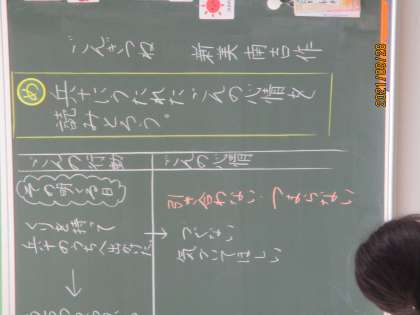 ごんぎつね　新美南吉作
め　兵十にうたれたごんの心情を
読みとろう。
ごんの行動
ごんの心情
その明くる日
引き合わない　つまらない
くりを持って
兵十のうちへ出かけた
→
つぐない
気づいてほしい
↓